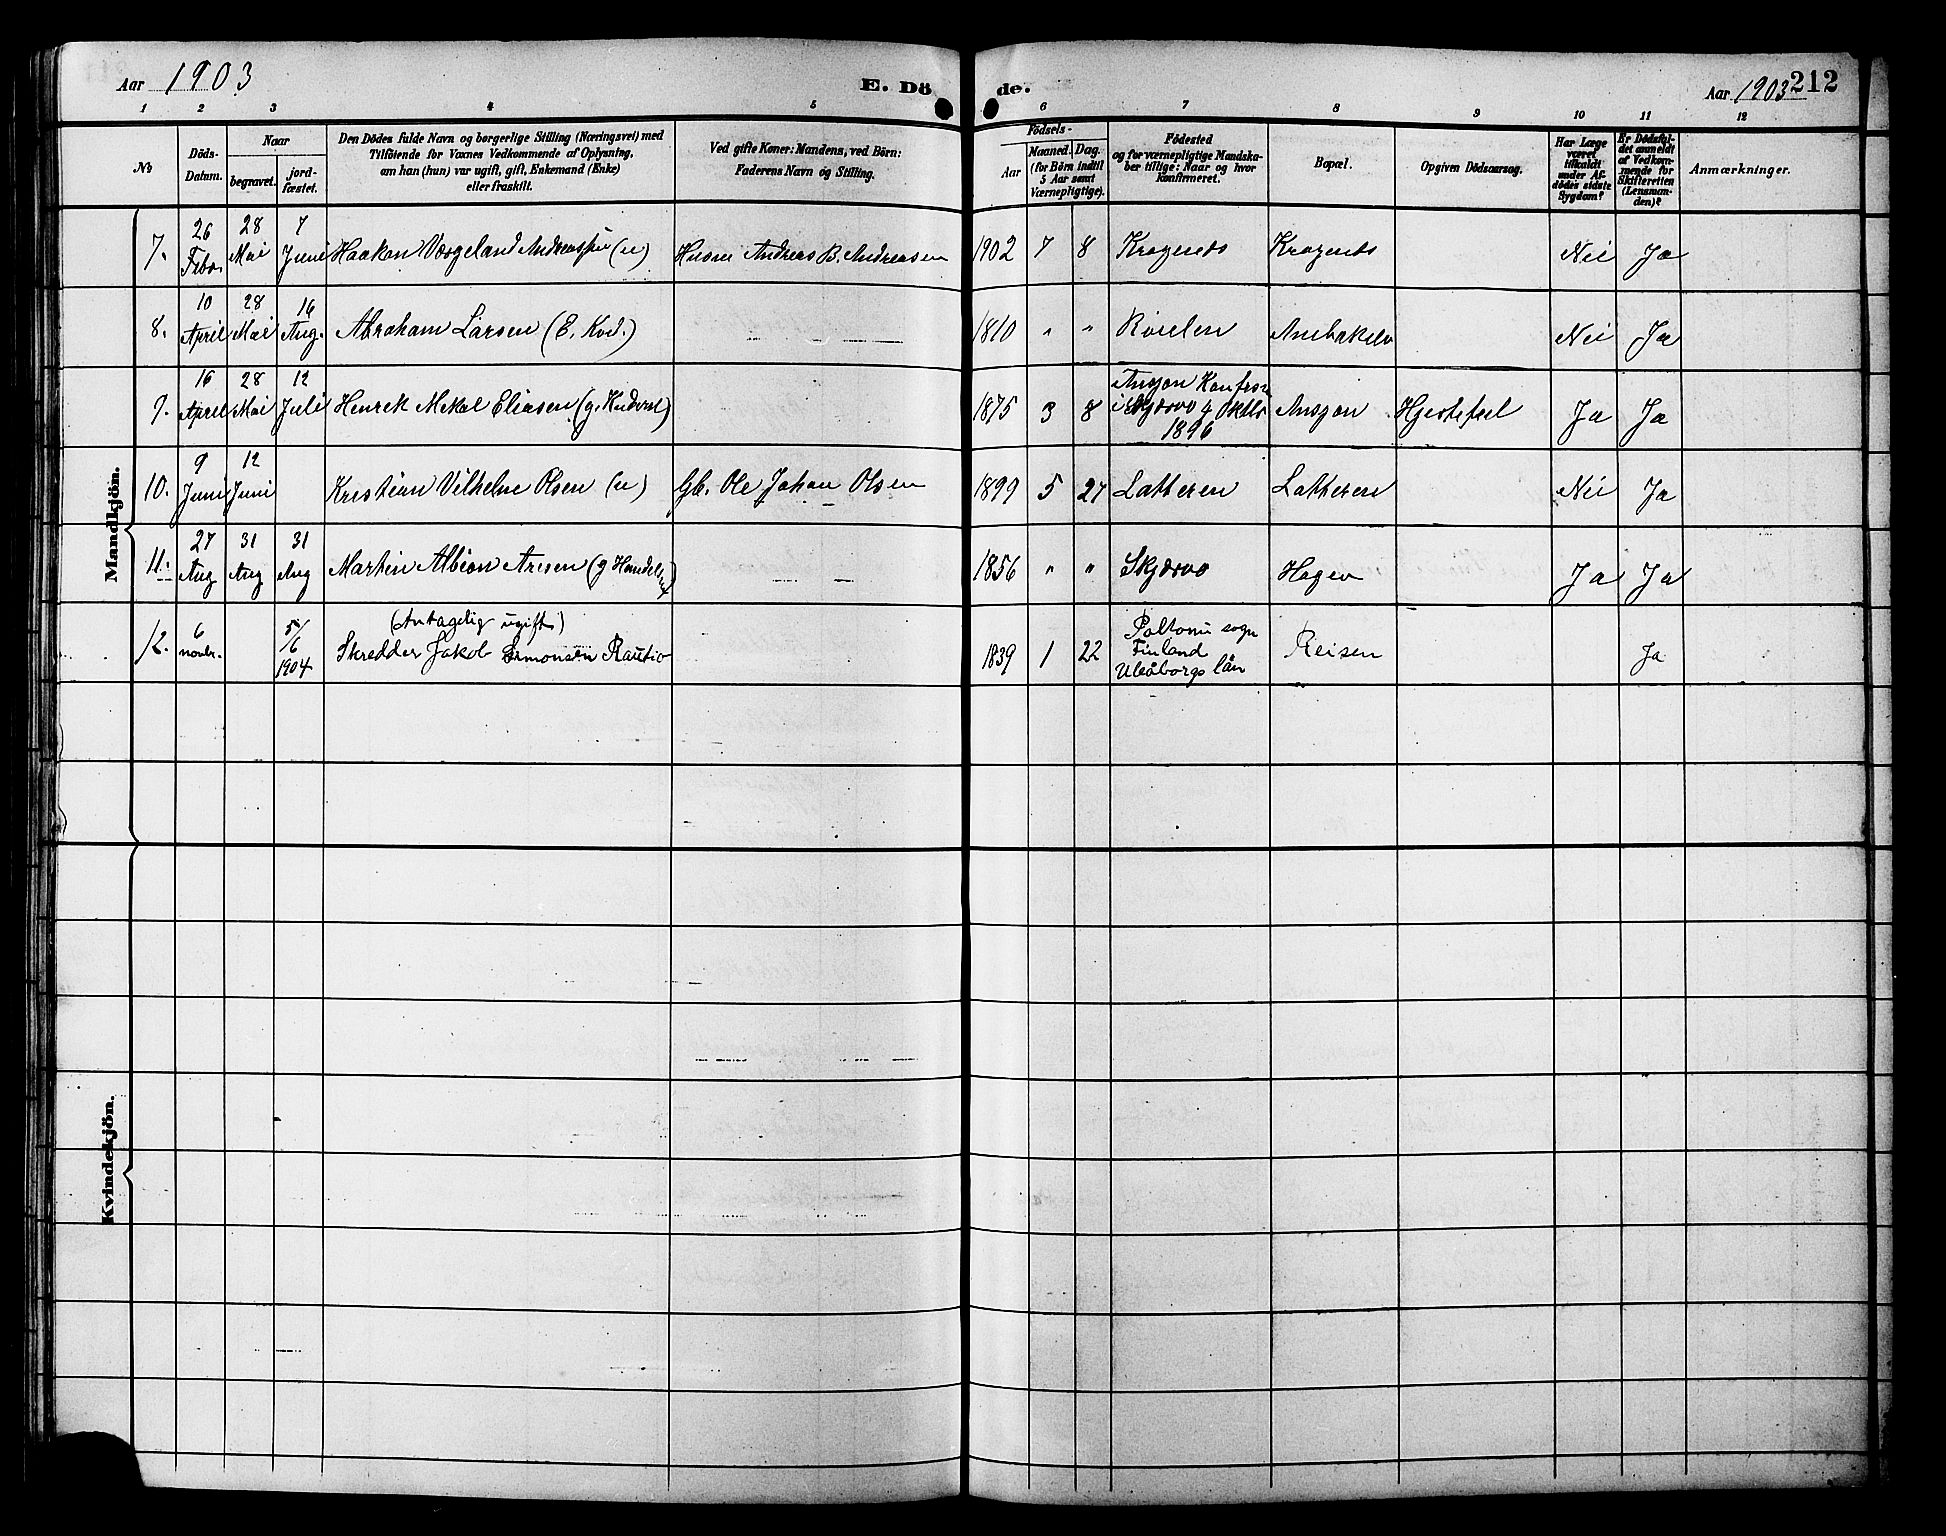 Aar 1903
E. Döde.
Aar 1903
212
1 2 3 4 5 6 7 8 9 10 11 12
№
Döds-
Datum.
Naar
begravet.
jord-
fæstet.
Den Dödes fulde Navn og borgerlige Stilling (Næringsvei) med
Tilföiende for Voxnes Vedkommende af Oplysning,
om han (hun) var ugift, gift, Enkemand (Enke)
eller fraskilt.
Ved gifte Koner: Mandens, ved Börn:
Faderens Navn og Stilling.
Födsels-
Aar
Maaned. Dag.
(for Börn indtil
5 Aar samt
Værnepligtige).
Födested
og for værnepligtige Mandska-
ber tillige: Naar og hvor
konfirmeret.
Bopæl.
Opgiven Dödsaarsag.
Har Læge
været
tilkaldt
under Af-
dödes sidste
Sygdom?
Er Dödsfal-
det anmeldt
af Vedkom-
mende for
Skifteretten
(Lensman-
den)?
Anmærkninger.
Mandkjön.
7. 26 Febr. 28 Mai 7 Juni Haakon Værgeland Andreassen (u) Husm Andreas B. Andreasen 1902 7 8 Nei Ja
8. 10 April 28 Mai 16 Aug. Abraham Larsen (E. Kvd.) 1810 " " Nei Ja
9. 16 April 28 Mai 12 Juli Henrek Mekal Eliasen 1875 3 8
i Skjærvø 4 Oktbr
1896
Hjertefeil Ja Ja
10. 9 Juni 12 Juni Kristian Vilhelm Olsen (u) Gb. Ole Johan Olsen 1899 5 27 Latteren Latteren Nei Ja
11. 27 Aug 31 Aug 31 Aug Martin Albion 1856 " " Skjærvø Ja Ja
12. 6 novbr. 5/6 1904
(Antagelig ugift)
Skredder Jakob Simonsen Rautio 1839 1 22
Paltomo sogn
Finland
Uleåborgs län
Reisen Ja
Kvindekjön.